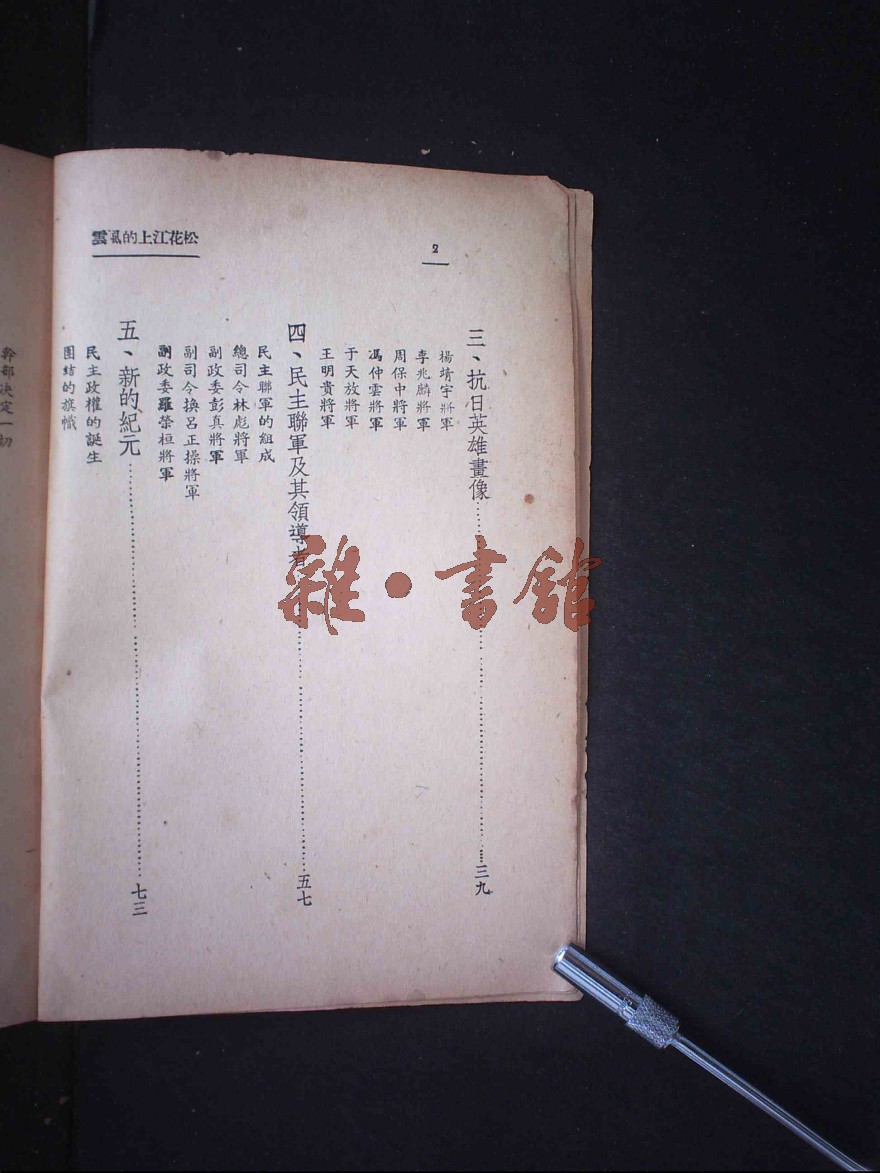 松花江上的風雲
2
三、抗日英雄畫像……三九
楊靖宇將軍
李兆麟將軍
周保中將軍
馮仲雲將軍
于天放將軍
王明貴將軍
四、民主聯軍及其領導者……五七
民主聯軍的組成
總司令林彪將軍
副政委彭真將軍
副司令換呂正操將軍
副政委羅榮桓將軍
五、新的紀元……七三
民主政權的誕生
團結的旗幟
幹部決定一切
雜·書館